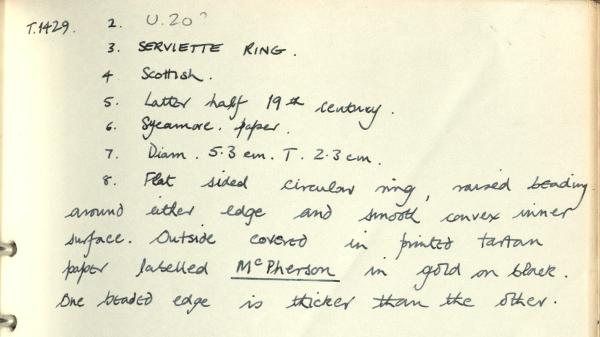 T.1429. 2. U.20?
3. SERVIETTE RING.
4 Scottish.
5. Latter half 19th century.
6. Sycamore. paper.
7. Diam. 5.3 cm. T. 2.3 cm.
8. Flat sided circular ring, raised beading
around either edge and smooth convex inner
surface. Outside covered in printed tartan
paper labelled McPherson in gold on black.
One beaded edge is thicker than the other.